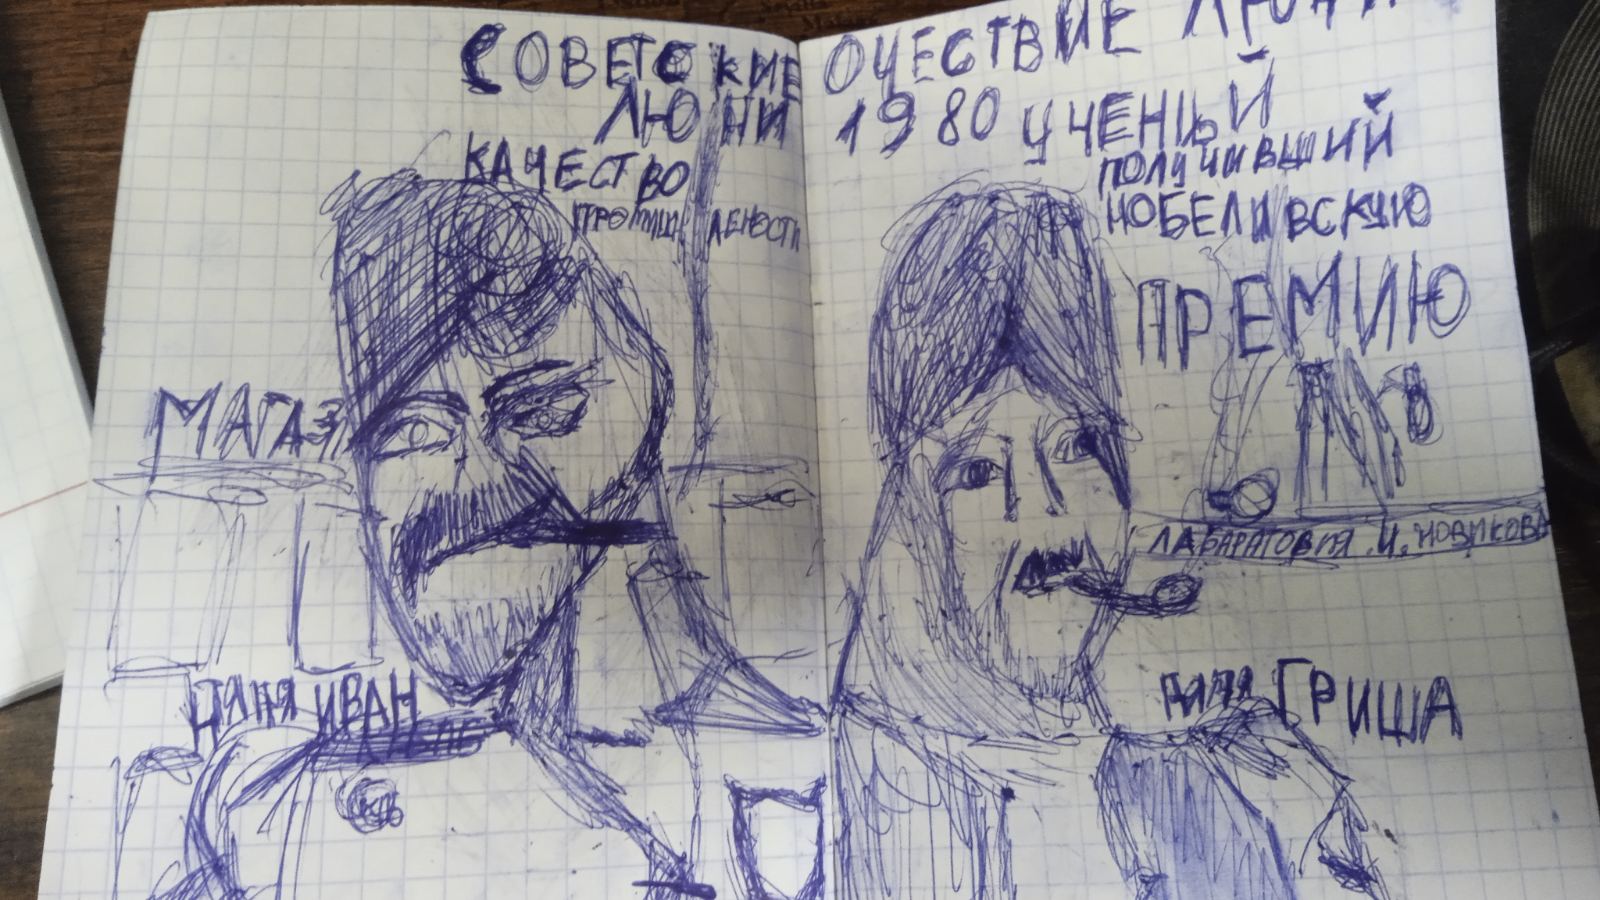 СОВЕТСКИЕ
ЛЮДИ
КАЧЕСТВО
ПРОМЫШЛЕНОСТИ
МАГАЗ
ИВАН
ОЧЕСТВИЕ
1980 УЧЕНЫЙ
ПОЛУЧИВШИЙ
НОБЕЛИВСКУЮ
ПРЕМИЮ
ЛАБАРАТОВИЯ И. НОВИКОВА
ГРИША